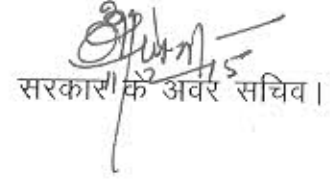 सरकार के अवर सचिव।